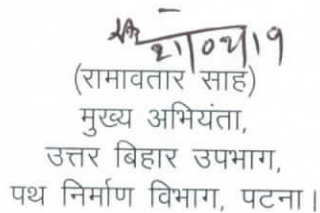 21/02/19
(रामावतार साह)
मुख्य अभियंता,
उत्तर बिहार उपभाग,
पथ निर्माण विभाग, पटना।